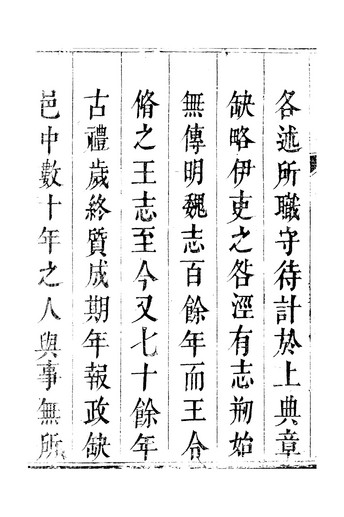 各述所職守待計於上典章
缺略伊吏之咎涇有志刱始
無傳明魏志百餘年而王令
脩之王志至今又七十餘年
古禮歲終質成期年報政缺
邑中數十年之人與事無所